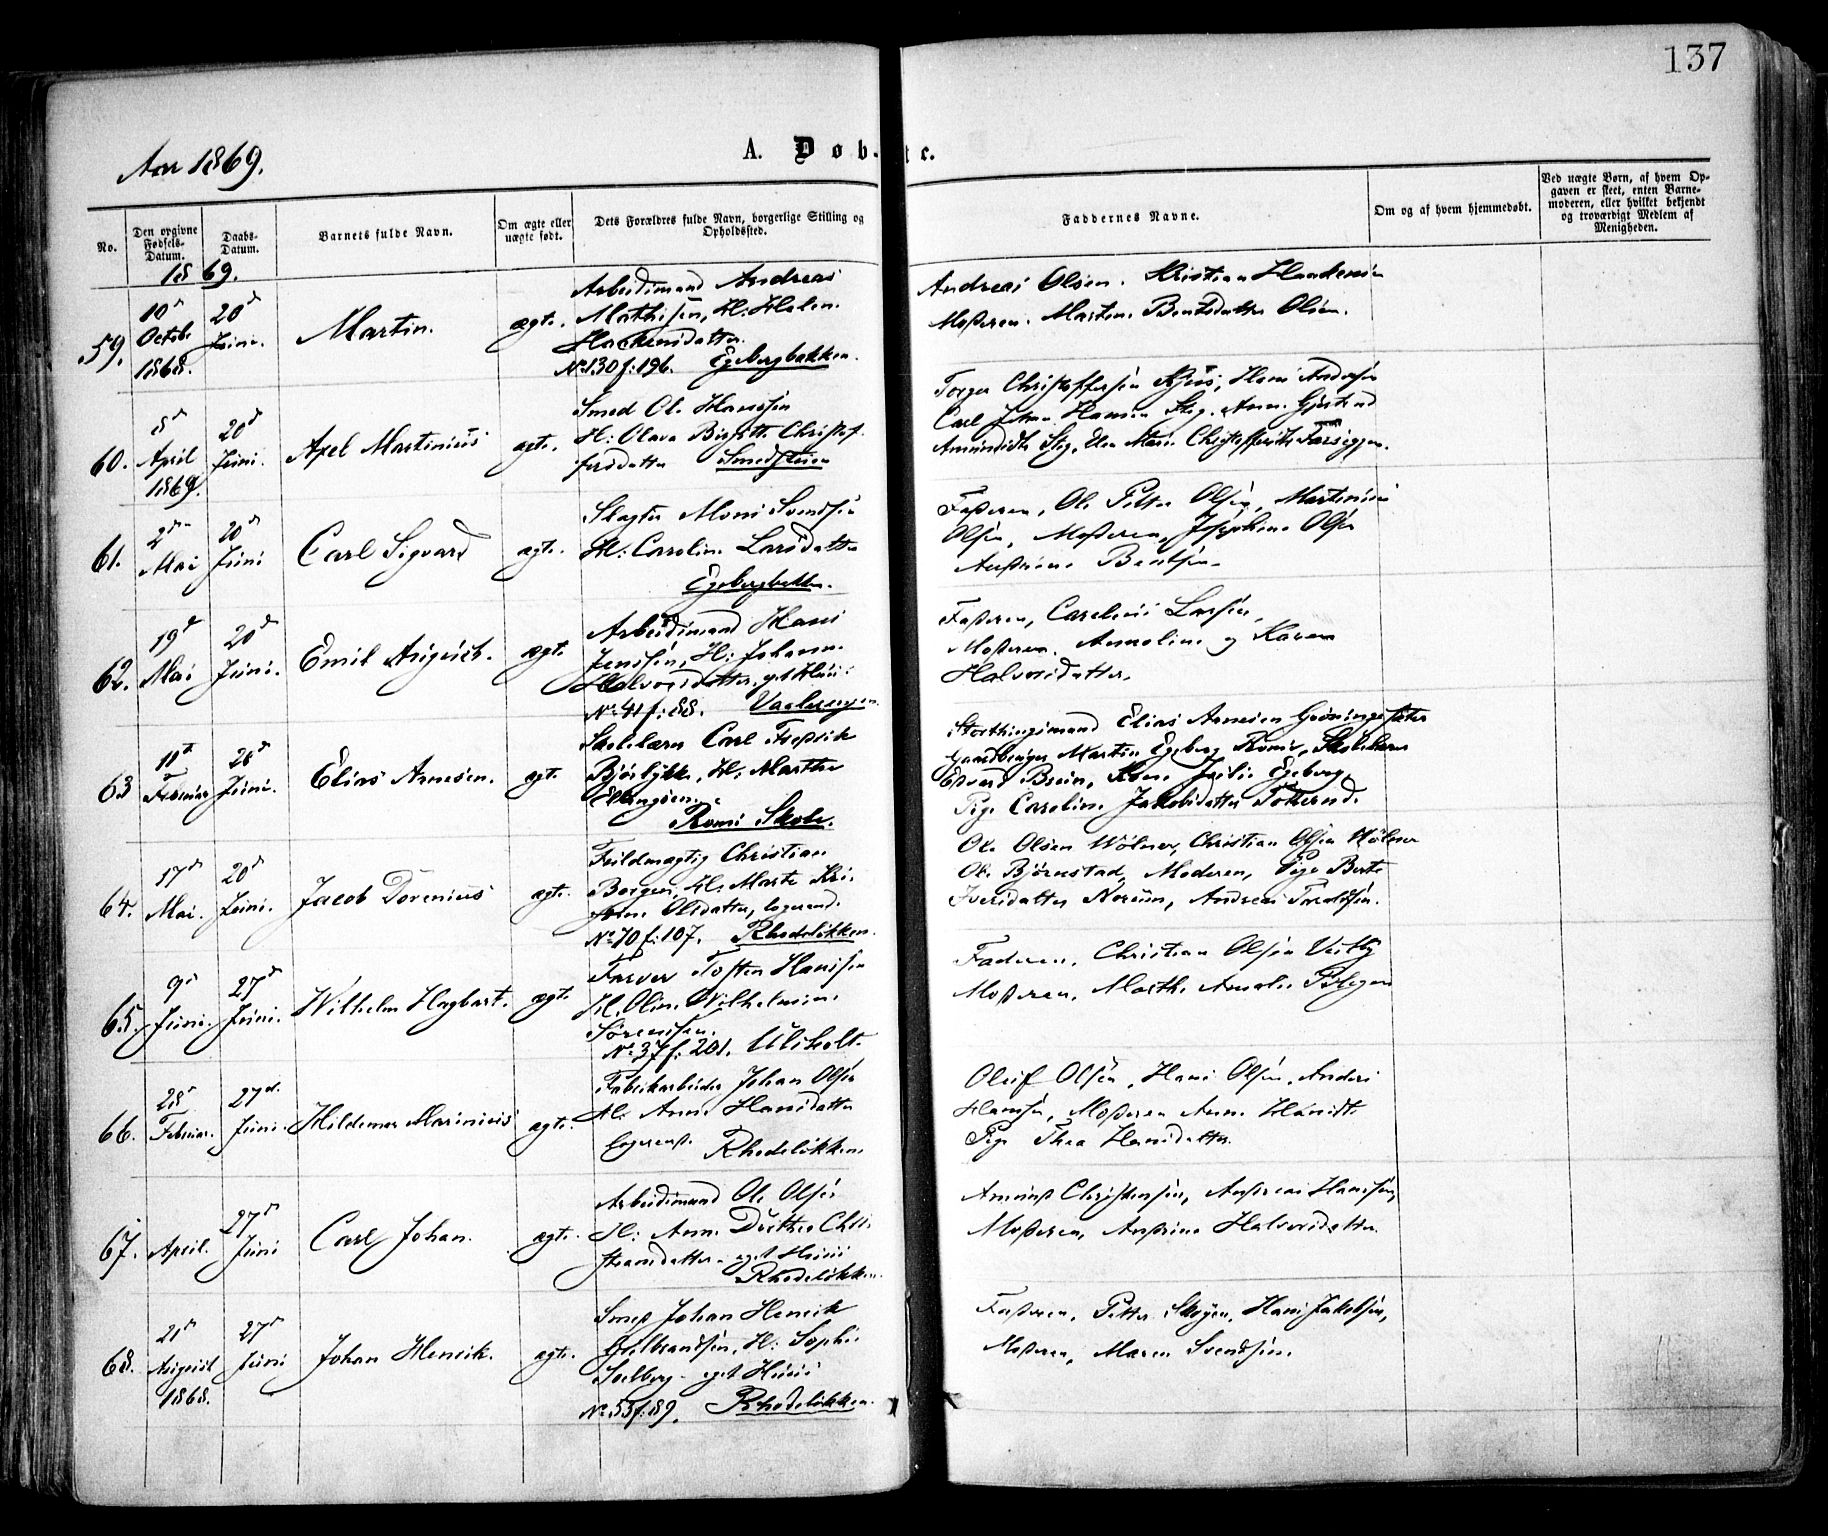 137
Aar 1869.
A. Døb te.
No.
Den opgivne Fødsels-Datum.
Daabs-Datum.
Barnets fulde Navn.
Om ægte eller uægte født.
Dets Forældres fulde Navn, borgerlige Stilling og Opholdssted.
Faddernes Navne.
Om og af hvem hjemmedøbt.
Ved uægte Børn, af hvem Op-
gaven er skeet, enten Barne-
moderen, eller hvilket bekjendt
og troværdigt Medlem af
Menigheden.
1869.
59.
10 Octob. 1868.
20 Juni.
Martin.
ægte.
Arbeidsmand Andreas
Mathisen, H: Helen
Hackensdatter.
No 130 f: 196. Egebergbakken.
Andreas Olsen. Kristian Haakensen
Moderen. Marten Berntsdatter Olsen.
60.
8 April 1869.
20 Juni.
Axel Martinius
ægte.
Smed Ole Hanssen
H: Olava Birgitte Christof-
fersdatter
Torger Christoffersen Hans Andersen
Carl Johan Hansen Steg. Anne
Amundsdtr Steg. Elen Marie
61.
2 Mai
20 Juni
Carl Sigvard
ægte.
Slagter Mons Svendsen
H: Caroline Larsdatter
Egebergbakken.
Faderen, Ole Petter Olsen, Martinius
Olsen, Moderen, Josephine Olsen
Bentsen.
62.
19 Mai
20 Juni.
Emil August.
ægte.
Arbeidsmand Hans
Jenssen, H: Johanne
Halvorsdatter, eget Huus:
No 41 f: 88. Vaalerengen
Faderen, Carelius Larsen,
Moderen. Annoline og Karen
Halvorsdatter.
63
11 Februar
26 Juni.
Elias Arnesen.
ægte
Skolelærer Carl Fredrik
Bjørlykke, H: Marthe
Ellingsen.
Roms Skole.
Storthingsmand Elias Arnesen Grøningsæter
Gaardbruger Martin Egeberg Romsø, Skolelærer
Edvard Bruun, Kone Julie Egeberg,
Pige Caroline Jakobsdatter
64.
17 Mai.
20 Juni.
Jacob Dorenius
ægte.
Fuldmægtig Christian
Borgen, H: Marte Kri-
stine Olsdatter, logerend.
No 70 f: 107. Rhodeløkken.
Ole Olsen Wølner, Christian Olsen Wølner
Ole Bjørnstad, Moderen, Pige Berte
Iversdatter Noreim, Andreas
65.
9 Juni.
27 Juni.
Wilhelm Hagbart.
ægte.
Farver Tosten Hanssen
H. Oline Wilhelmine
Sørenssen.
No 37 f: 201. Ulsholt.
Faderen, Christian Olsen
Moderen, Marthe Amalie
66.
28 Februar.
27 Juni.
Hildemar Marinius
ægte.
Fabrikarbeider Johan Olsen
H: Anne Hansdatter
Logerende Rhodeløkken
Oluf Olsen, Hans Olsen, Anders
Hansen, Moderen Anne Hansdt.
Pige Thea Hansdatter.
67.
April.
27 Juni
Carl Johan.
ægte.
Arbeidsmand Ole Olsen
H: Anne Dorthea Chri-
stiansdatter eget Huus
Rhodeløkken.
Amund Christensen, Andreas Hanssen,
Moderen, Andrine Halvorsdatter.
68.
21 August 1868.
27 Juni
Johan Henrik.
ægte.
Smed Johan Henrik
Gulbrandsen, H: Sophie
Solberg eget Huus
No 55 f: 89. Rhodeløkken.
Faderen, Petter Skøyen, Hans Jakobsen,
Moderen, Maren Svendsen.